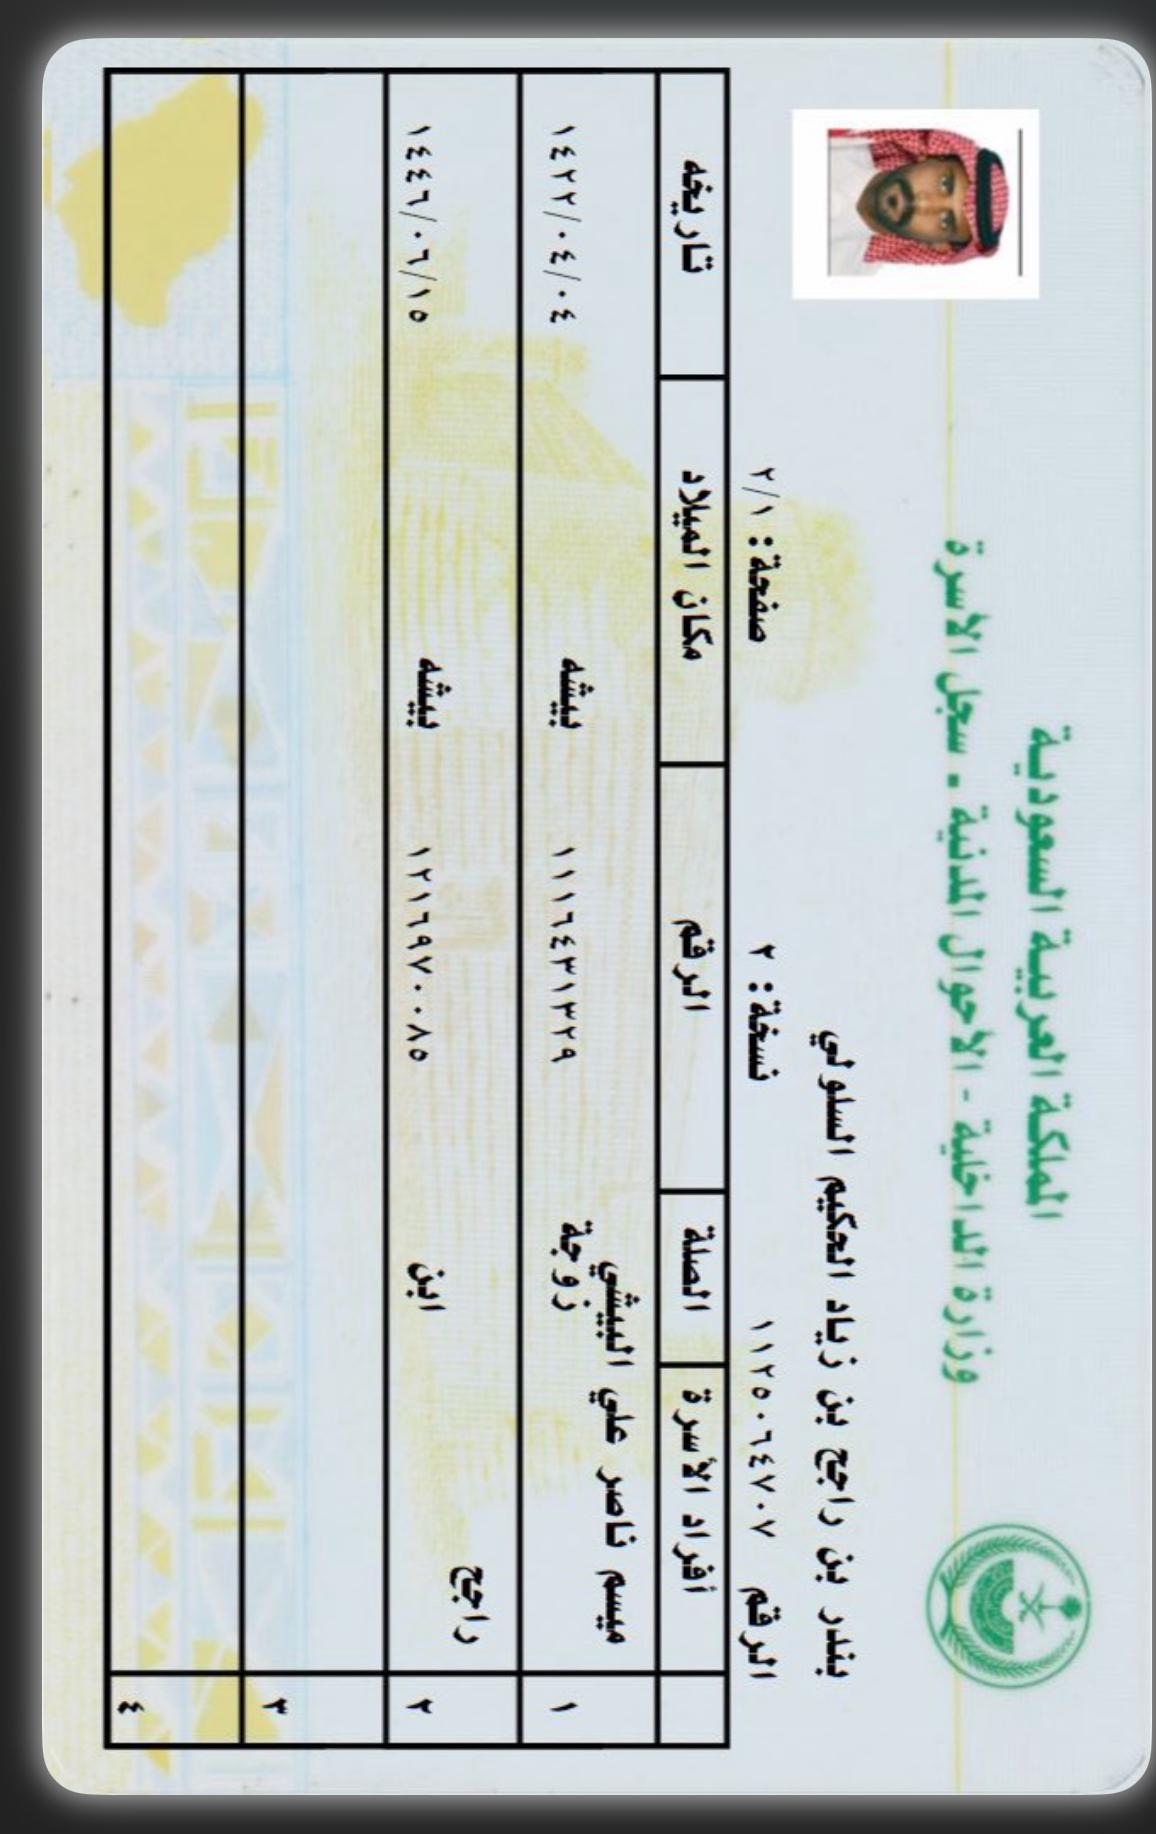 المملكة العربية السعودية
وزارة الداخلية - الأحوال المدنية - سجل الأسرة
بندر بن راجح بن زياد الحكيم السلولي
الرقم ١١٢٥٠٦٤٧٠٧ نسخة : ٢ صفحة : ٢/١
أفراد الأسرة الصلة الرقم مكان الميلاد تاريخه
١ ميسم ناصر علي البيشي زوجة ١١١٦٤٣١٣٢٩ بيشه ١٤٢٢/٠٤/٠٤
٢ راجح ابن ١٢١٦٩٧٠٠٨٥ بيشه ١٤٤٦/٠٦/١٥
٣
٤